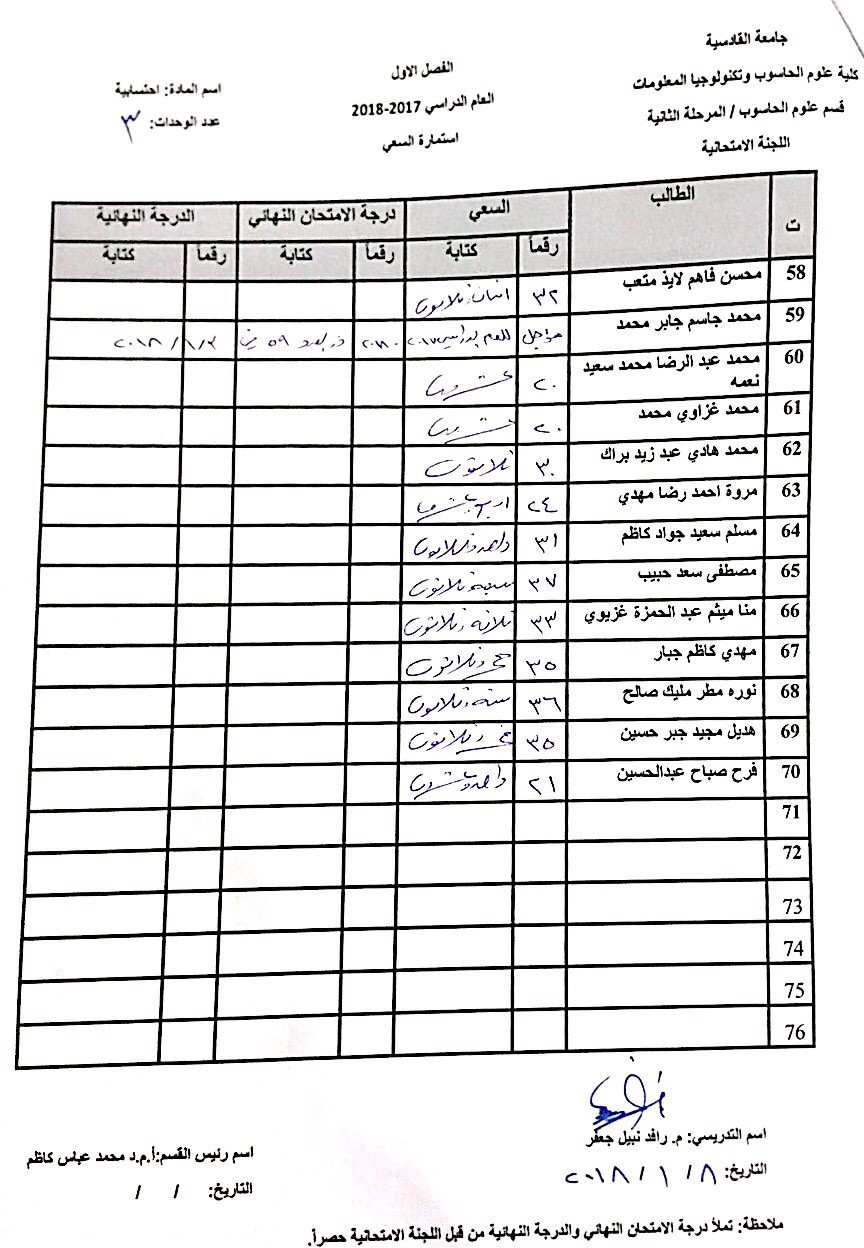 جامعة القادسية
كلية علوم الحاسوب وتكنولوجيا المعلومات
قسم علوم الحاسوب / المرحلة الثانية
اللجنة الامتحانية
الفصل الاول
العام الدراسي 2017-2018
استمارة السعي
اسم المادة: احتسابية
عدد الوحدات: ٣
ت الطالب السعي درجة الامتحان النهائي الدرجة النهائية
رقماً كتابة رقماً كتابة رقماً كتابة
58 محسن فاهم لايذ متعب ٣٢ اثنان وثلاثون
59 محمد جاسم جابر محمد مؤجل للعام الدراسي ٥٩ ٢٠١٨/١/٣
60 محمد عبد الرضا محمد سعيد نعمه ٢٠ عشرون
61 محمد غزاوي محمد ٢٠ عشرون
62 محمد هادي عبد زيد براك ٣٠ ثلاثون
63 مروة احمد رضا مهدي ٢٤ اربعة وعشرون
64 مسلم سعيد جواد كاظم ٣١ واحد وثلاثون
65 مصطفى سعد حبيب ٣٧ سبعة وثلاثون
66 منا ميثم عبد الحمزة غزيوي ٣٣ ثلاثة وثلاثون
67 مهدي كاظم جبار ٣٥ خمس وثلاثون
68 نوره مطر مليك صالح ٣٦ ستة وثلاثون
69 هديل مجيد جبر حسين ٣٥ خمس وثلاثون
70 فرح صباح عبدالحسين ٢١ واحد وعشرون
71
72
73
74
75
76
اسم التدريسي: م. رافد نبيل جعفر
التاريخ: ٢٠١٨ / ١ / ٨
اسم رئيس القسم:أ.م.د محمد عباس كاظم
التاريخ: / /
ملاحظة: تملأ درجة الامتحان النهائي والدرجة النهائية من قبل اللجنة الامتحانية حصراً.